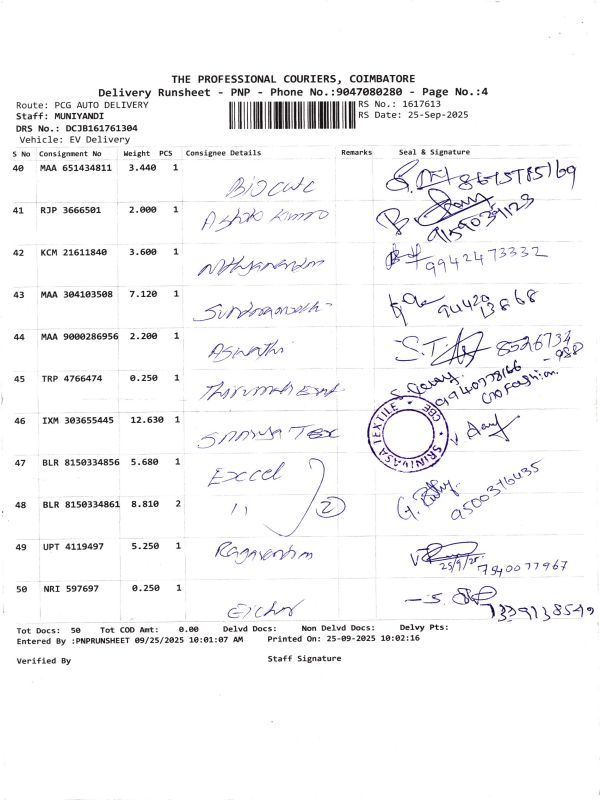 THE PROFESSIONAL COURIERS, COIMBATORE
Delivery Runsheet - PNP - Phone No.:9047080280 - Page No.:4
Route: PCG AUTO DELIVERY RS No.: 1617613
Staff: MUNIYANDI RS Date: 25-Sep-2025
DRS No.: DCJB161761304
Vehicle: EV Delivery
S No Consignment No Weight PCS Consignee Details Remarks Seal & Signature
40 MAA 651434811 3.440 1
41 RJP 3666501 2.000 1 Ashok
42 KCM 21611840 3.600 1 Nithyanandan 9942473332
43 MAA 304103508 7.120 1 94420 13868
44 MAA 9000286956 2.200 1 Aswathi S.T 8526734 -988
45 TRP 4766474 0.250 1 9940778166
46 IXM 303655445 12.630 1 Srinivasa Tex SRINIVASA TEXTILE CBE
47 BLR 8150334856 5.680 1 Excel
48 BLR 8150334861 8.810 2 11 2 9500376435
49 UPT 4119497 5.250 1 Ragavendra 25/9/25 7940077967
50 NRI 597697 0.250 1 Eicher 7339138549
Tot Docs: 50 Tot COD Amt: 0.00 Delvd Docs: Non Delvd Docs: Delvy Pts:
Entered By :PNPRUNSHEET 09/25/2025 10:01:07 AM Printed On: 25-09-2025 10:02:16
Verified By Staff Signature